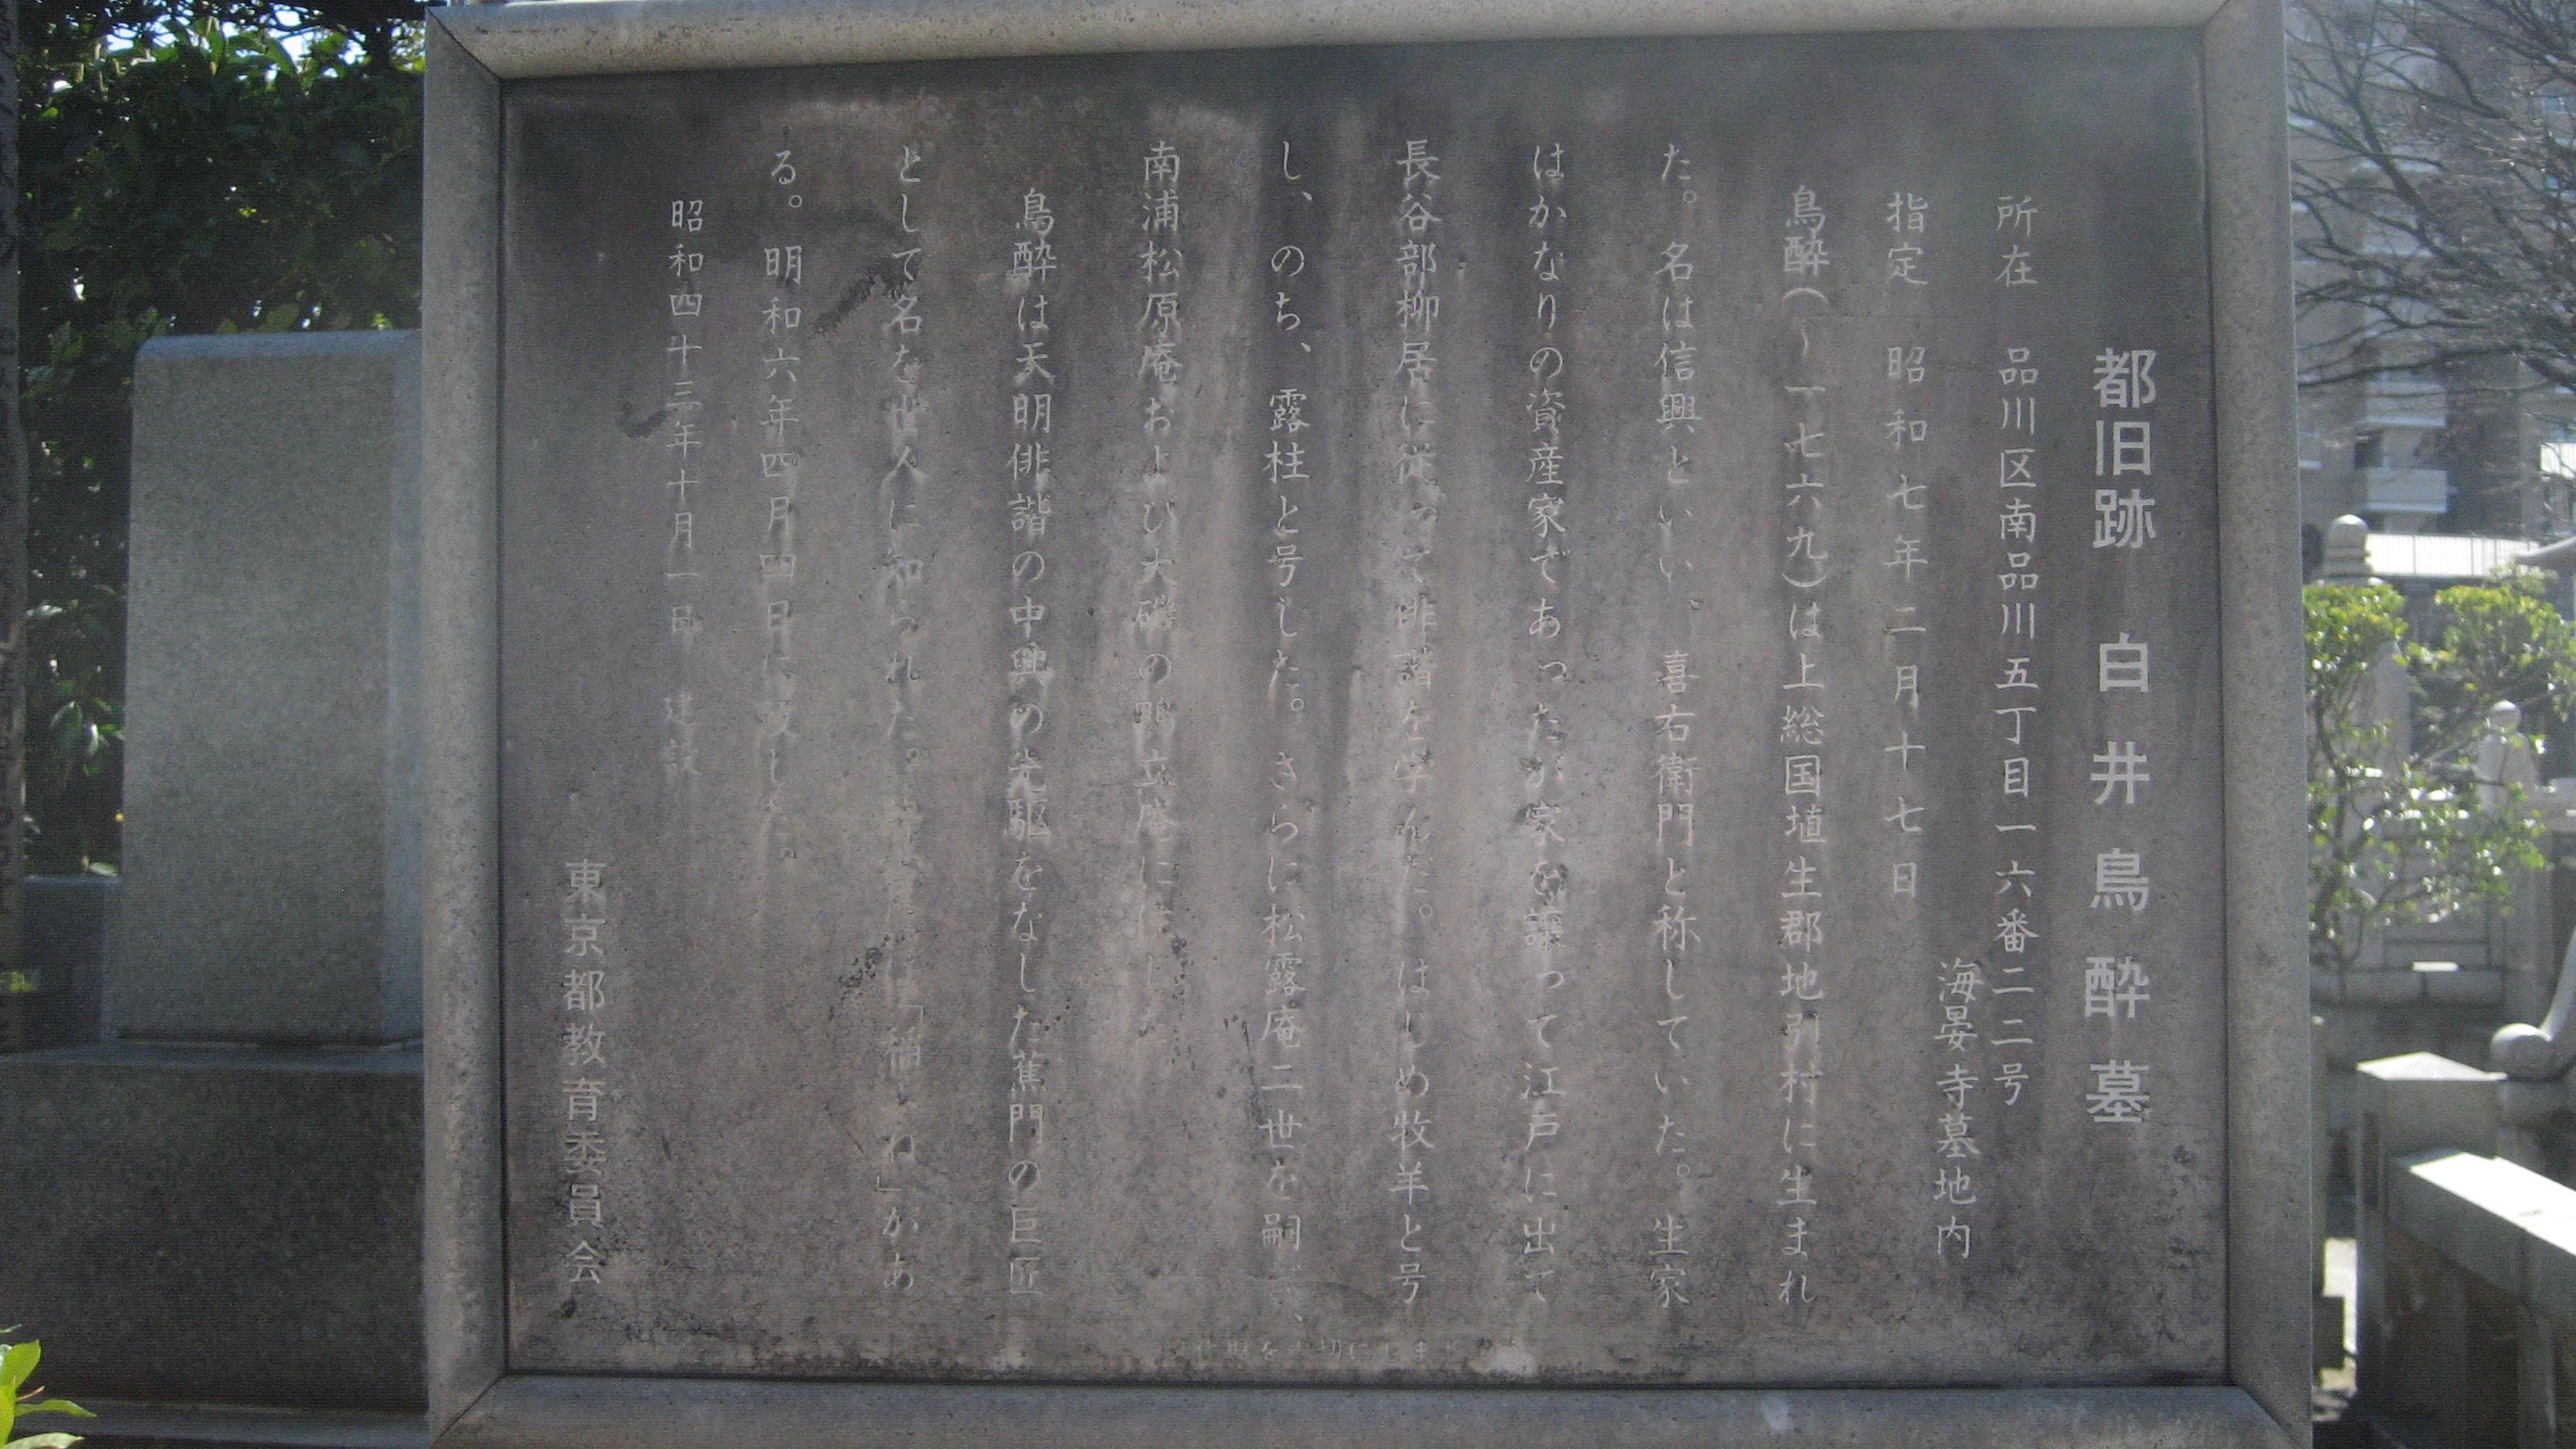 都旧跡 白井鳥酔墓
所在 品川区南品川五丁目一六番二二号
海晏寺墓地内
指定 昭和七年二月十七日
鳥酔(~一七六九)は上総国埴生郡地引村に生まれ
た。名は信興といい、喜右衛門と称していた。生家
はかなりの資産家であったが家を譲って江戸に出て
長谷部柳居に従って俳諧を学んだ。はじめ牧羊と号
し、のち、露柱と号した。さらに松露庵二世を嗣
南浦松原庵および大磯の鴫立庵に住した
鳥酔は天明俳諧の中興の先駆をなした蕉門の巨匠
として名を世人に知られた。「稲 」があ
る。明和六年四月四日に没した。
昭和四十三年十月一日 建設
東京都教育委員会